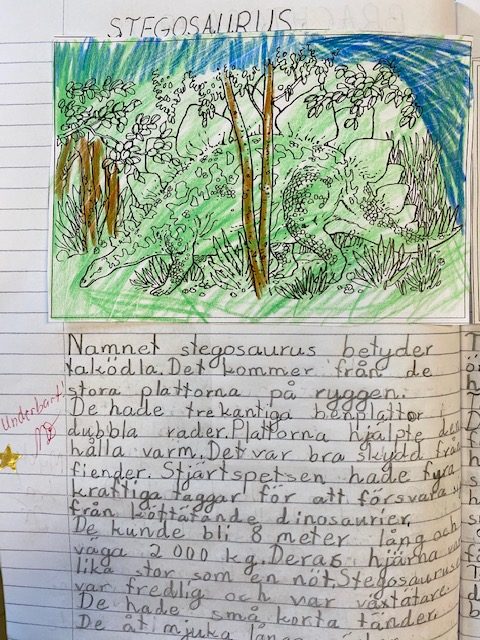 STEGOSAURUS
Namnet stegosaurus betyder
taködla. Det kommer från de
stora plattorna på ryggen.
De hade trekantiga benplattor
Underbart!
dubbla rader. Plattorna hjälpte
hålla varm. Det var bra skydd från
fiender. Stjärtspetsen hade fyra
kraftiga taggar för att försvara
från köttätande dinosaurier.
De kunde bli 8 meter lång och
väga 2 000 kg. Deras hjärna
lika stor som en nöt. Stegosaurus
var fredlig och var växtätare.
De hade små korta tänder.
De åt mjuka